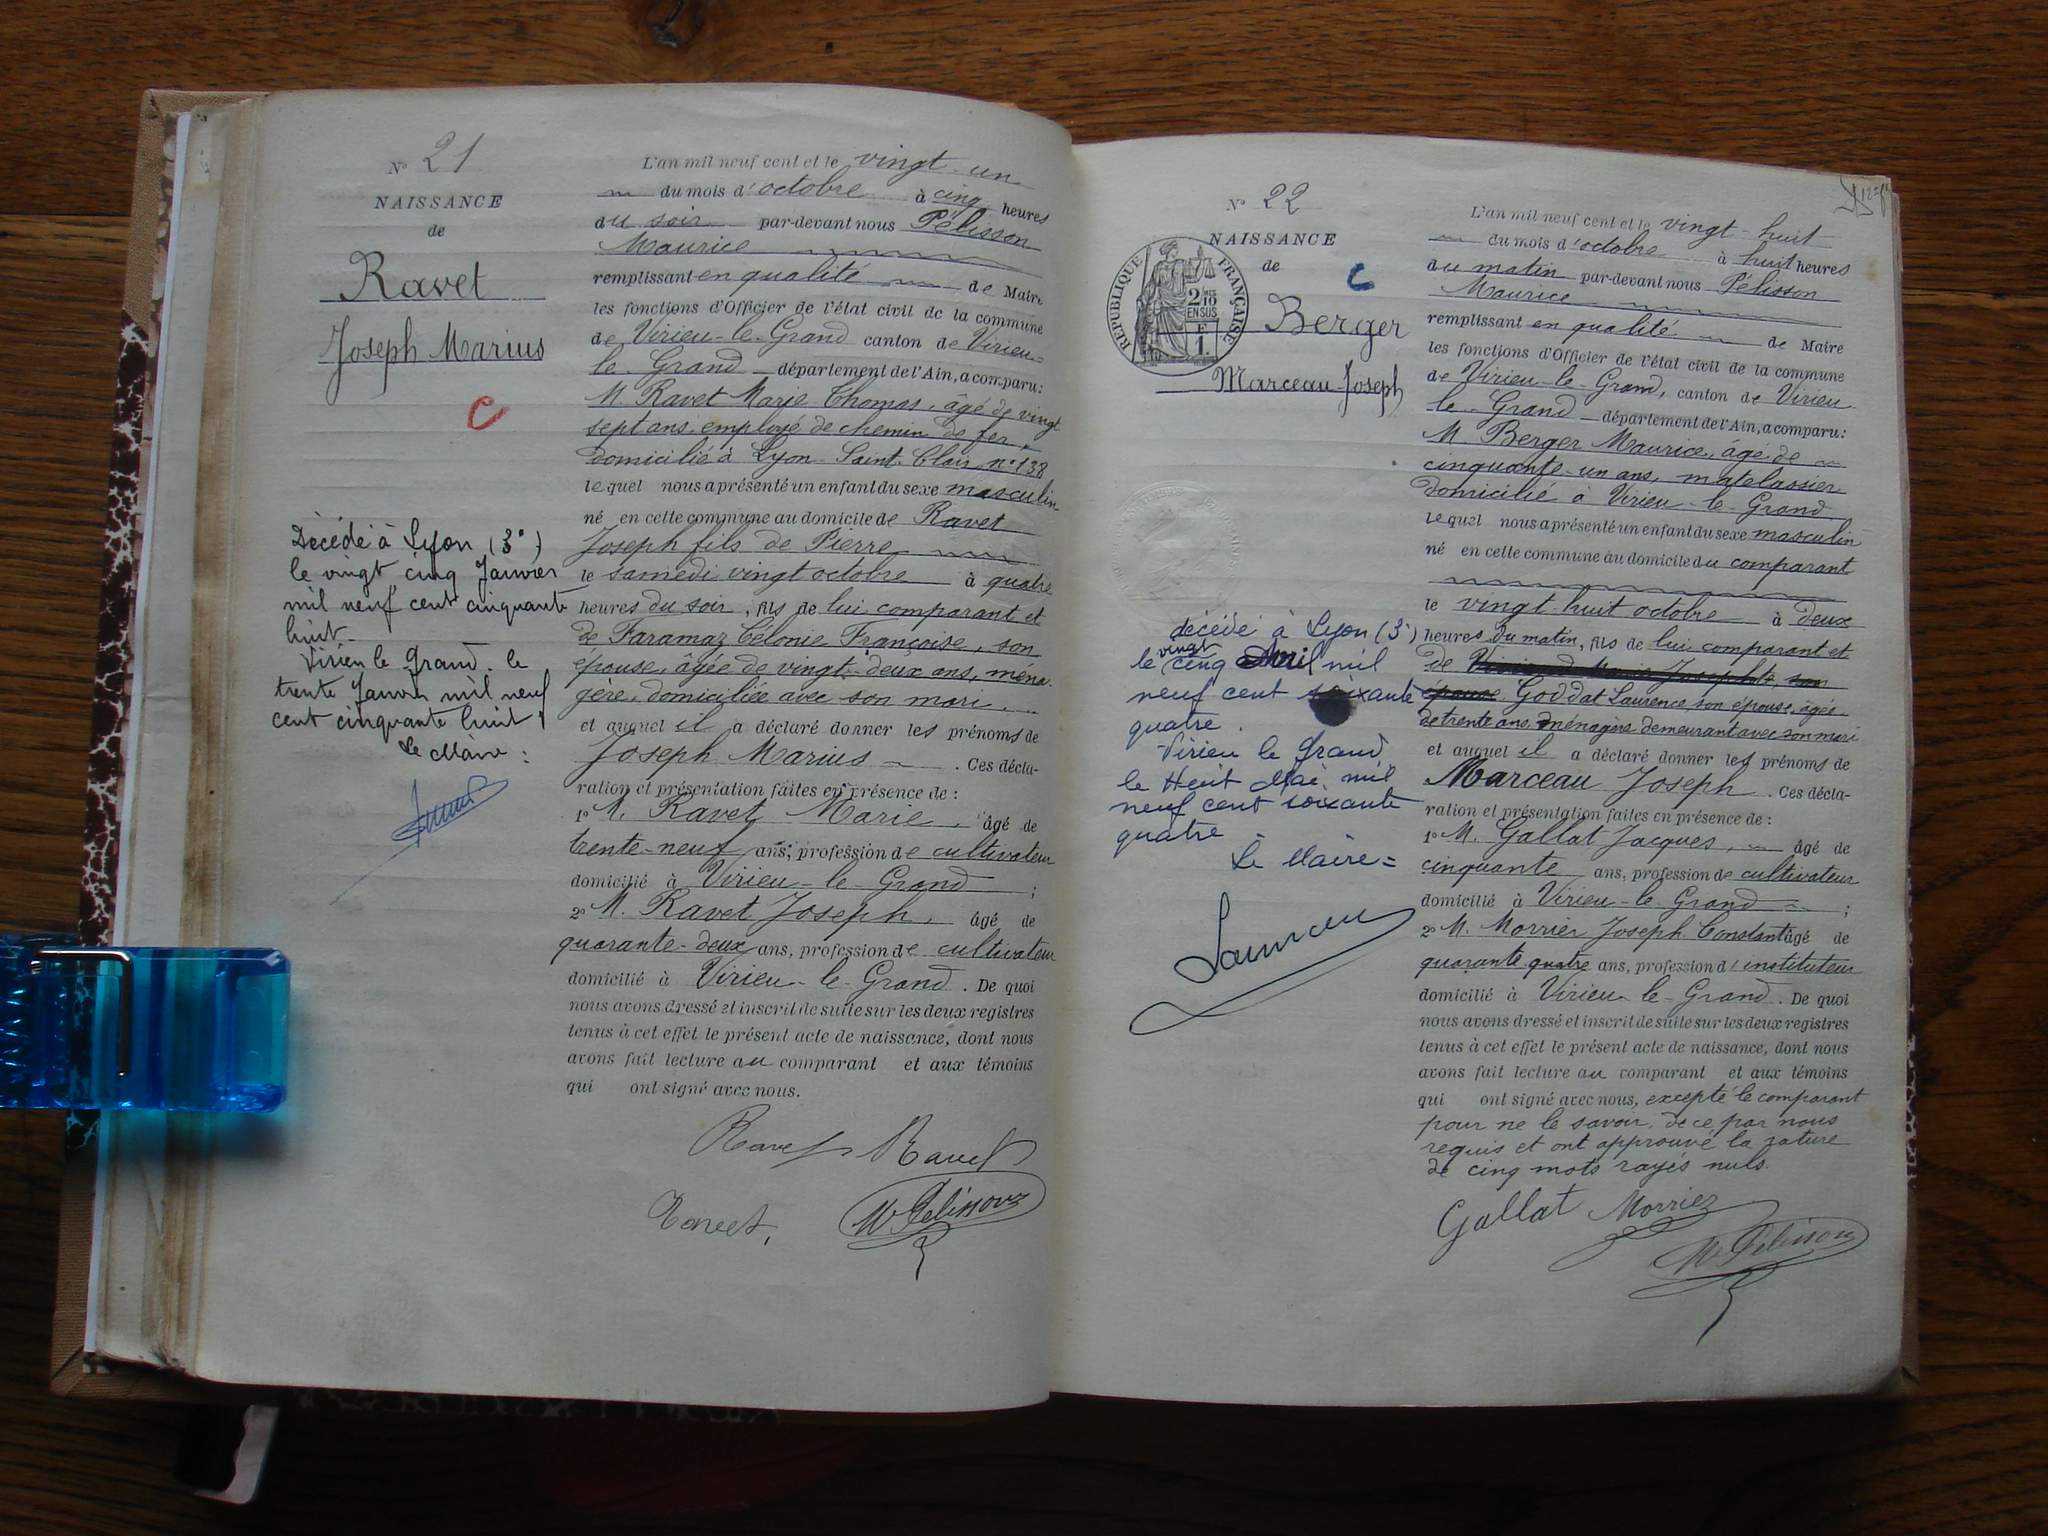 N° 21
NAISSANCE
de
Ravet
Joseph Marius
C
Décédé à Lyon (3e)
le vingt cinq Janvier
mil neuf cent cinquante
huit.
Virieu le Grand. le
trente Janvier mil neuf
cent cinquante huit
Le Maire :
L'an mil neuf cent et le vingt-un
du mois d'octobre à cinq heures
du soir par-devant nous Pélisson
Maurice
remplissant en qualité de Maire
les fonctions d'Officier de l'état civil de la commune
de Virieu-le-Grand canton de Virieu-
le-Grand département de l'Ain, a comparu :
M. Ravet Marie Thomas, âgé de vingt
sept ans, employé de chemin de fer,
domicilié à Lyon-Saint-Clair n° 138
lequel nous a présenté un enfant du sexe masculin
né en cette commune au domicile de Ravet
Joseph fils de Pierre
le samedi vingt octobre à quatre
heures du soir, fils de lui comparant et
de Faramaz Célonie Françoise, son
épouse, âgée de vingt-deux ans, ména-
gère, domiciliée avec son mari.
et auquel il a déclaré donner les prénoms de
Joseph Marius . Ces décla-
ration et présentation faites en présence de :
1° M. Ravet Marie, âgé de
trente-neuf ans, profession de cultivateur
domicilié à Virieu-le-Grand ;
2° M. Ravet Joseph, âgé de
quarante-deux ans, profession de cultivateur
domicilié à Virieu-le-Grand. De quoi
nous avons dressé et inscrit de suite sur les deux registres
tenus à cet effet le présent acte de naissance, dont nous
avons fait lecture au comparant et aux témoins
qui ont signé avec nous.
Ravet Ravet
Ravet, M. Pélisson
N° 22
NAISSANCE
de
C
REPUBLIQUE FRANÇAISE
2/10
EN SUS
F
1.
Berger
Marceau-Joseph
décédé à Lyon (3e)
vingt
le cinq Avril mil
neuf cent soixante
quatre.
Virieu le Grand
le Huit Mai mil
neuf cent soixante
quatre
Le Maire =
L'an mil neuf cent et le vingt-huit
du mois d'octobre à huit heures
du matin par-devant nous Pélisson
Maurice
remplissant en qualité de Maire
les fonctions d'Officier de l'état civil de la commune
de Virieu-le-Grand, canton de Virieu-
le-Grand département de l'Ain, a comparu :
M. Berger Maurice, âgé de
cinquante-un ans, matelassier
domicilié à Virieu-le-Grand
lequel nous a présenté un enfant du sexe masculin
né en cette commune au domicile du comparant
le vingt-huit octobre à deux
heures du matin, fils de lui comparant et
de Josephte, son
épouse Goddat Laurence son épouse, âgée
de trente ans, ménagère demeurant avec son mari
et auquel il a déclaré donner les prénoms de
Marceau Joseph . Ces décla-
ration et présentation faites en présence de :
1° M. Gallat Jacques, âgé de
cinquante ans, profession de cultivateur
domicilié à Virieu-le-Grand ;
2° M. Morrier Joseph Constant âgé de
quarante quatre ans, profession d'instituteur
domicilié à Virieu-le-Grand. De quoi
nous avons dressé et inscrit de suite sur les deux registres
tenus à cet effet le présent acte de naissance, dont nous
avons fait lecture au comparant et aux témoins
qui ont signé avec nous, excepté le comparant
pour ne le savoir, de ce par nous
requis et ont approuvé la rature
de cinq mots rayés nuls.
Gallat Morrier
M. Pélisson